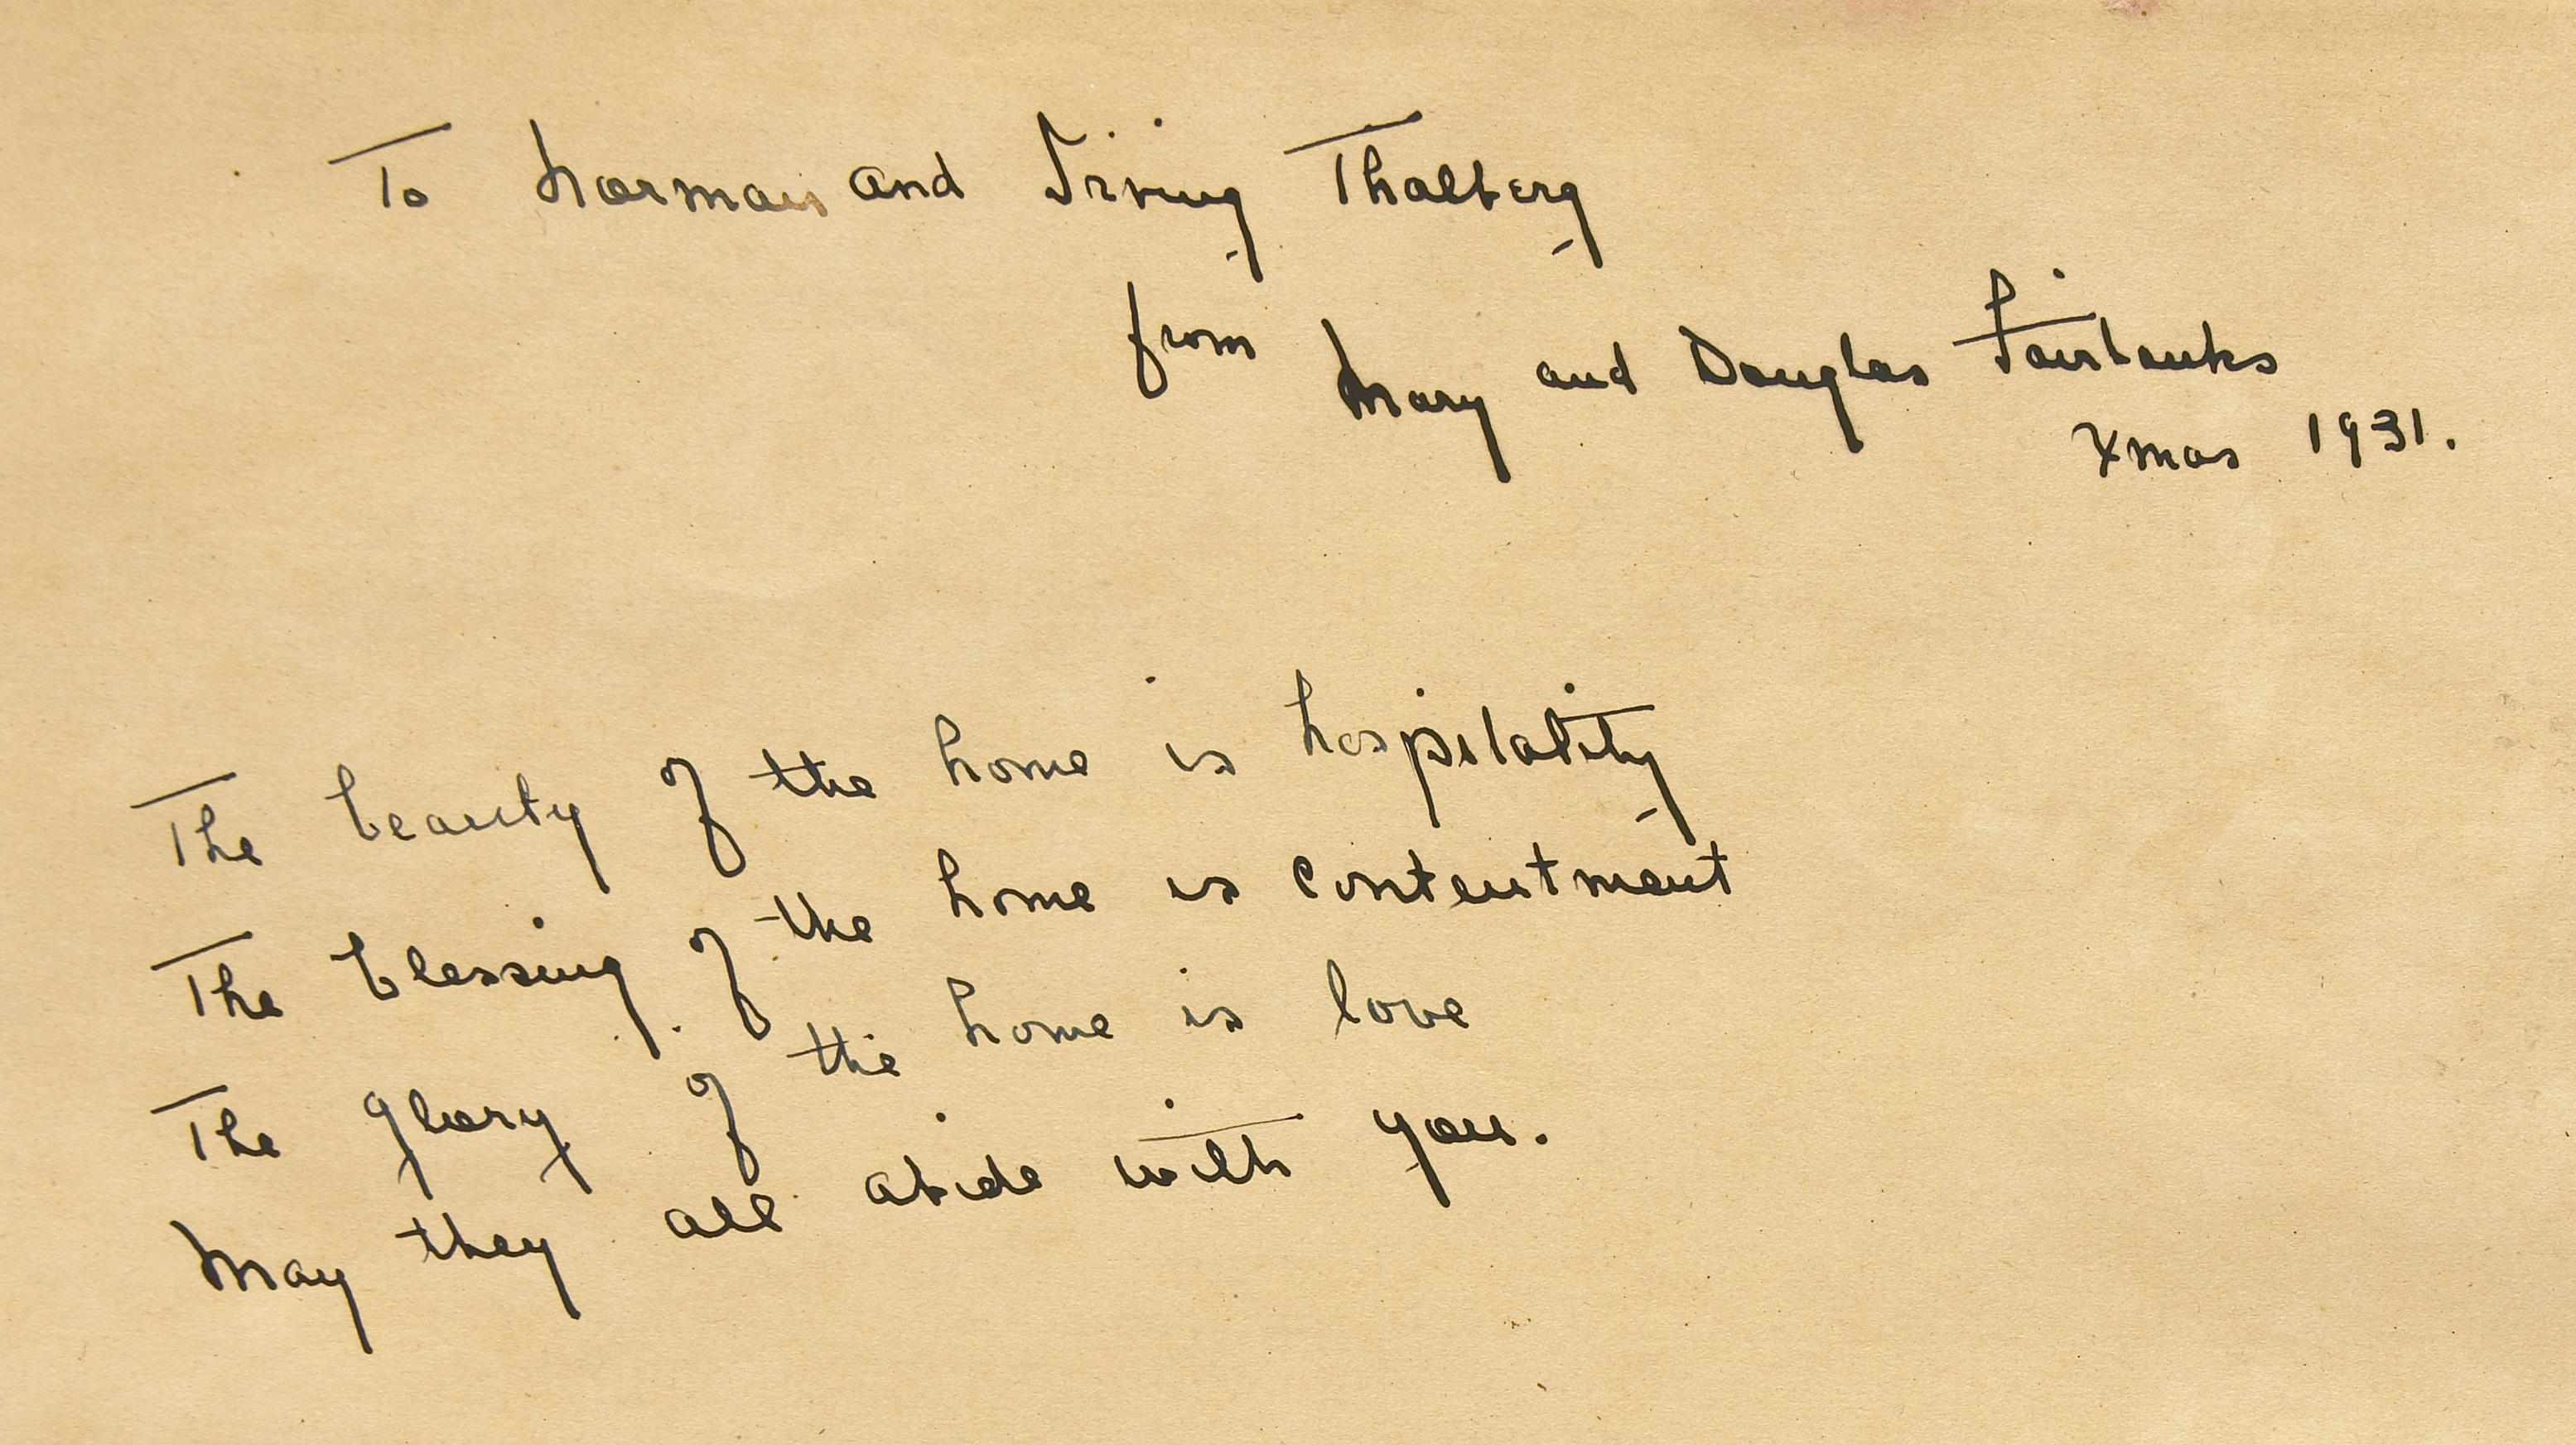 To Norman and Irving Thalberg
from Mary and Douglas Fairbanks
Xmas 1931.
The beauty of the home is hospitality
The blessing of the home is contentment
The glory of the home is love
May they all abide with you.